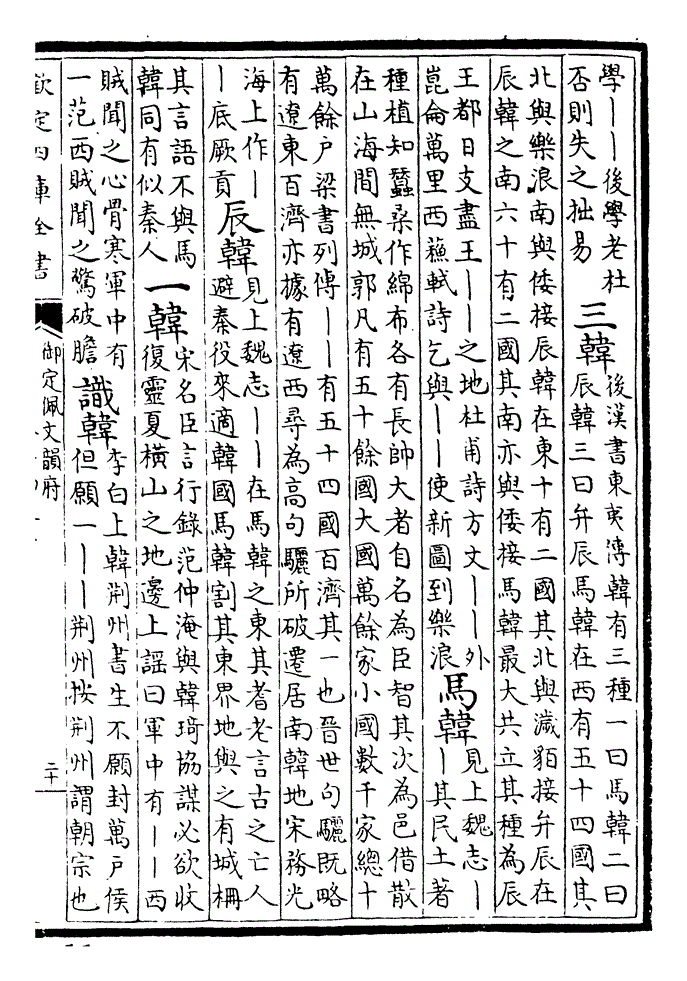 學｜｜後學老杜
否則失之拙易
三韓
後漢書東夷傳韓有三種一曰馬韓二曰
辰韓三曰弁辰馬韓在西有五十四國其
北與樂浪南與倭接辰韓在東十有二國其北與濊貊接弁辰在
辰韓之南六十有二國其南亦與倭接馬韓最大共立其種為辰
王都日支盡王｜｜之地杜甫詩方丈｜｜外
崑侖萬里西蘓軾詩乞與｜｜使新圖到樂浪
馬韓
見上魏志｜
｜其民土著
種植知蠶桑作綿布各有長帥大者自名為臣智其次為邑借散
在山海間無城郭凡有五十餘國大國萬餘家小國數千家總十
萬餘戶梁書列傳｜｜有五十四國百濟其一也晉世句驪既略
有遼東百濟亦據有遼西尋為高句驪所破遷居南韓地宋務光
海上作｜
｜底厥貢
辰韓
見上魏志｜｜在馬韓之東其耆老言古之亡人
避秦役來適韓國馬韓割其東界地與之有城柵
其言語不與馬
韓同有似秦人
一韓
宋名臣言行錄范仲淹與韓琦協謀必欲收
復靈夏橫山之地邊上謡曰軍中有｜｜西
賊聞之心骨寒軍中有
一范西賊聞之驚破膽
識韓
李白上韓荆州書生不願封萬戶侯
但願一｜｜荆州按荆州謂朝宗也
欽定四庫全書
御定佩文韻府
二十